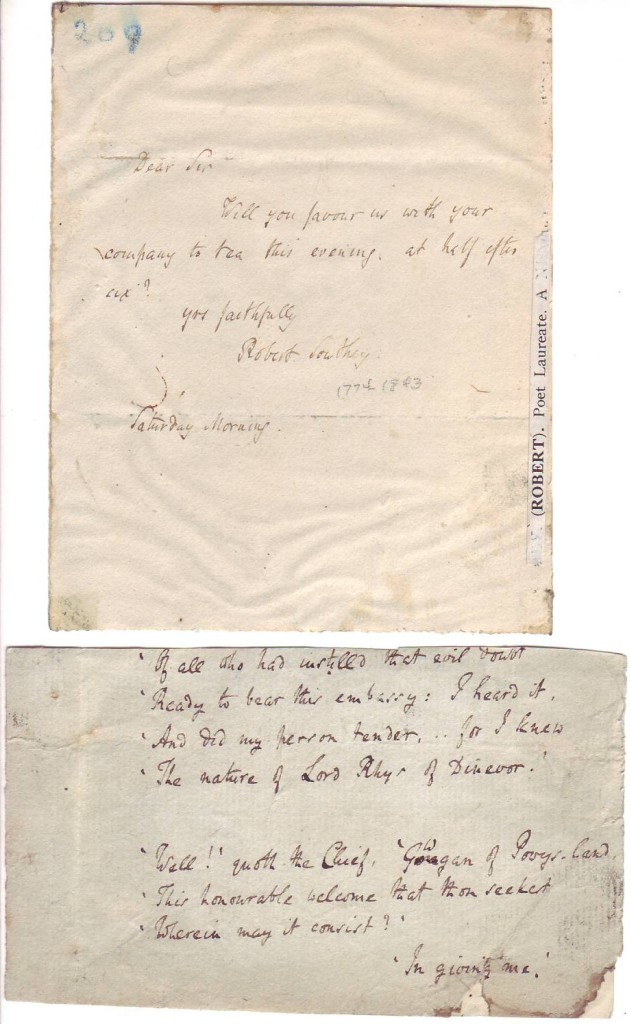 209
Dear Sir
Will you favour us with your
company to tea this evening, at half after
six?
yrs faithfully
Robert Southey.
1774 1843
Saturday Morning.
(ROBERT). Poet Laureate. A
'Of all who had instilled that evil doubt
'Ready to bear this embassy: I heard it,
'And did my person tender, .. for I knew
'The nature of Lord Rhys of Dinevor.'
'Well!' quoth the Chief, 'Gwgan of Powys-land,
'This honourable welcome that thou seekest
'Wherein may it consist?'
'In giving me,'